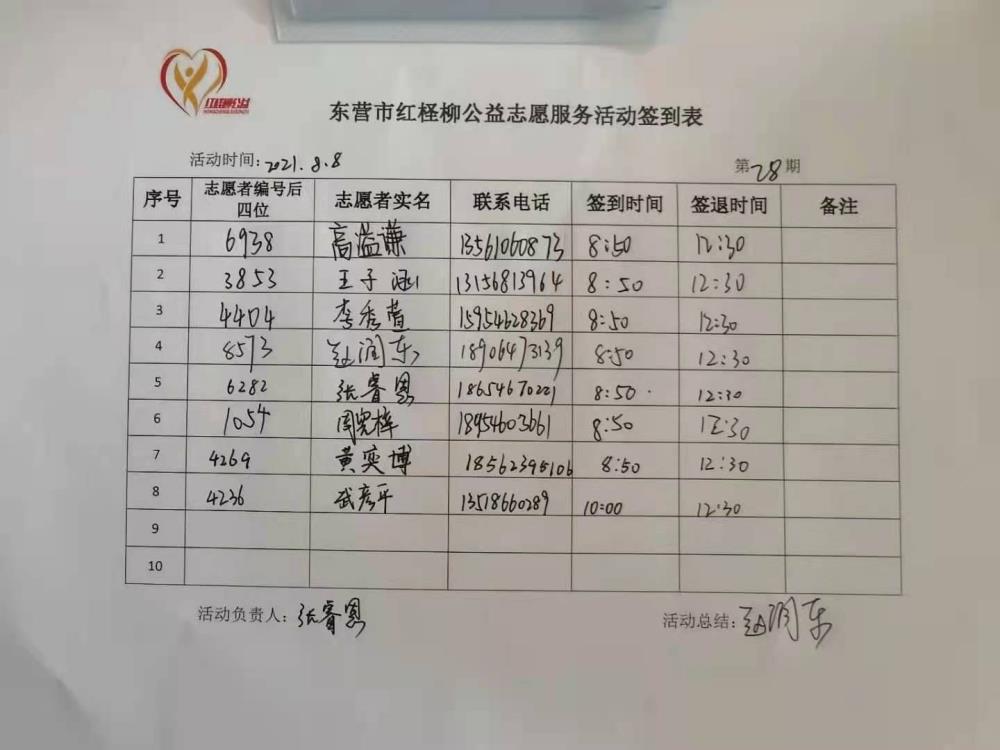 红柽柳公益
东营市红柽柳公益志愿服务活动签到表
活动时间：2021.8.8 第28期
序号 志愿者编号后四位 志愿者实名 联系电话 签到时间 签退时间 备注
1 6938 高溢谦 13561060873 8:50 12:30
2 3853 王子涵 13156813964 8:50 12:30
3 4404 李秀萱 15954628369 8:50 12:30
4 8573 赵润东 18906473139 8:50 12:30
5 6282 张睿恩 18654670221 8:50 12:30
6 1054 周宪梓 18954603661 8:50 12:30
7 4269 黄奕博 18562395106 8:50 12:30
8 4236 武彦平 13518660289 10:00 12:30
9
10
活动负责人：张睿恩 活动总结：赵润东